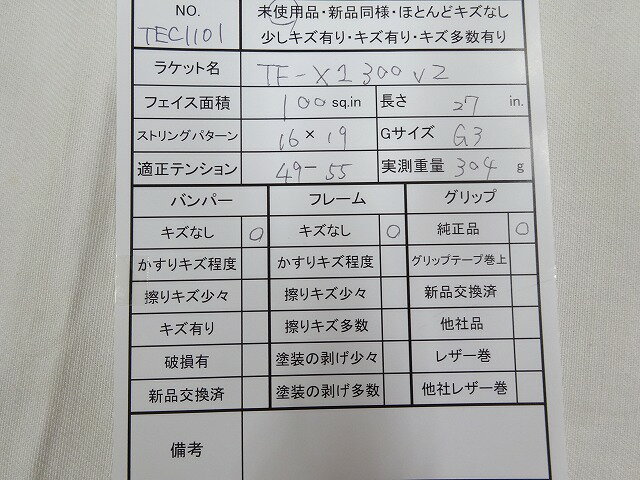 NO.
TEC1101
未使用品・新品同様・ほとんどキズなし
少しキズ有り・キズ有り・キズ多数有り
ラケット名 TF-X1 300 V2
フェイス面積 100 sq.in 長さ 27 in.
ストリングパターン 16 × 19 Gサイズ G3
適正テンション 49-55 実測重量 304 g
バンパー フレーム グリップ
キズなし ○ キズなし ○ 純正品 ○
かすりキズ程度 かすりキズ程度 グリップテープ巻上
擦りキズ少々 擦りキズ少々 新品交換済
キズ有り 擦りキズ多数 他社品
破損有 塗装の剥げ少々 レザー巻
新品交換済 塗装の剥げ多数 他社レザー巻
備考